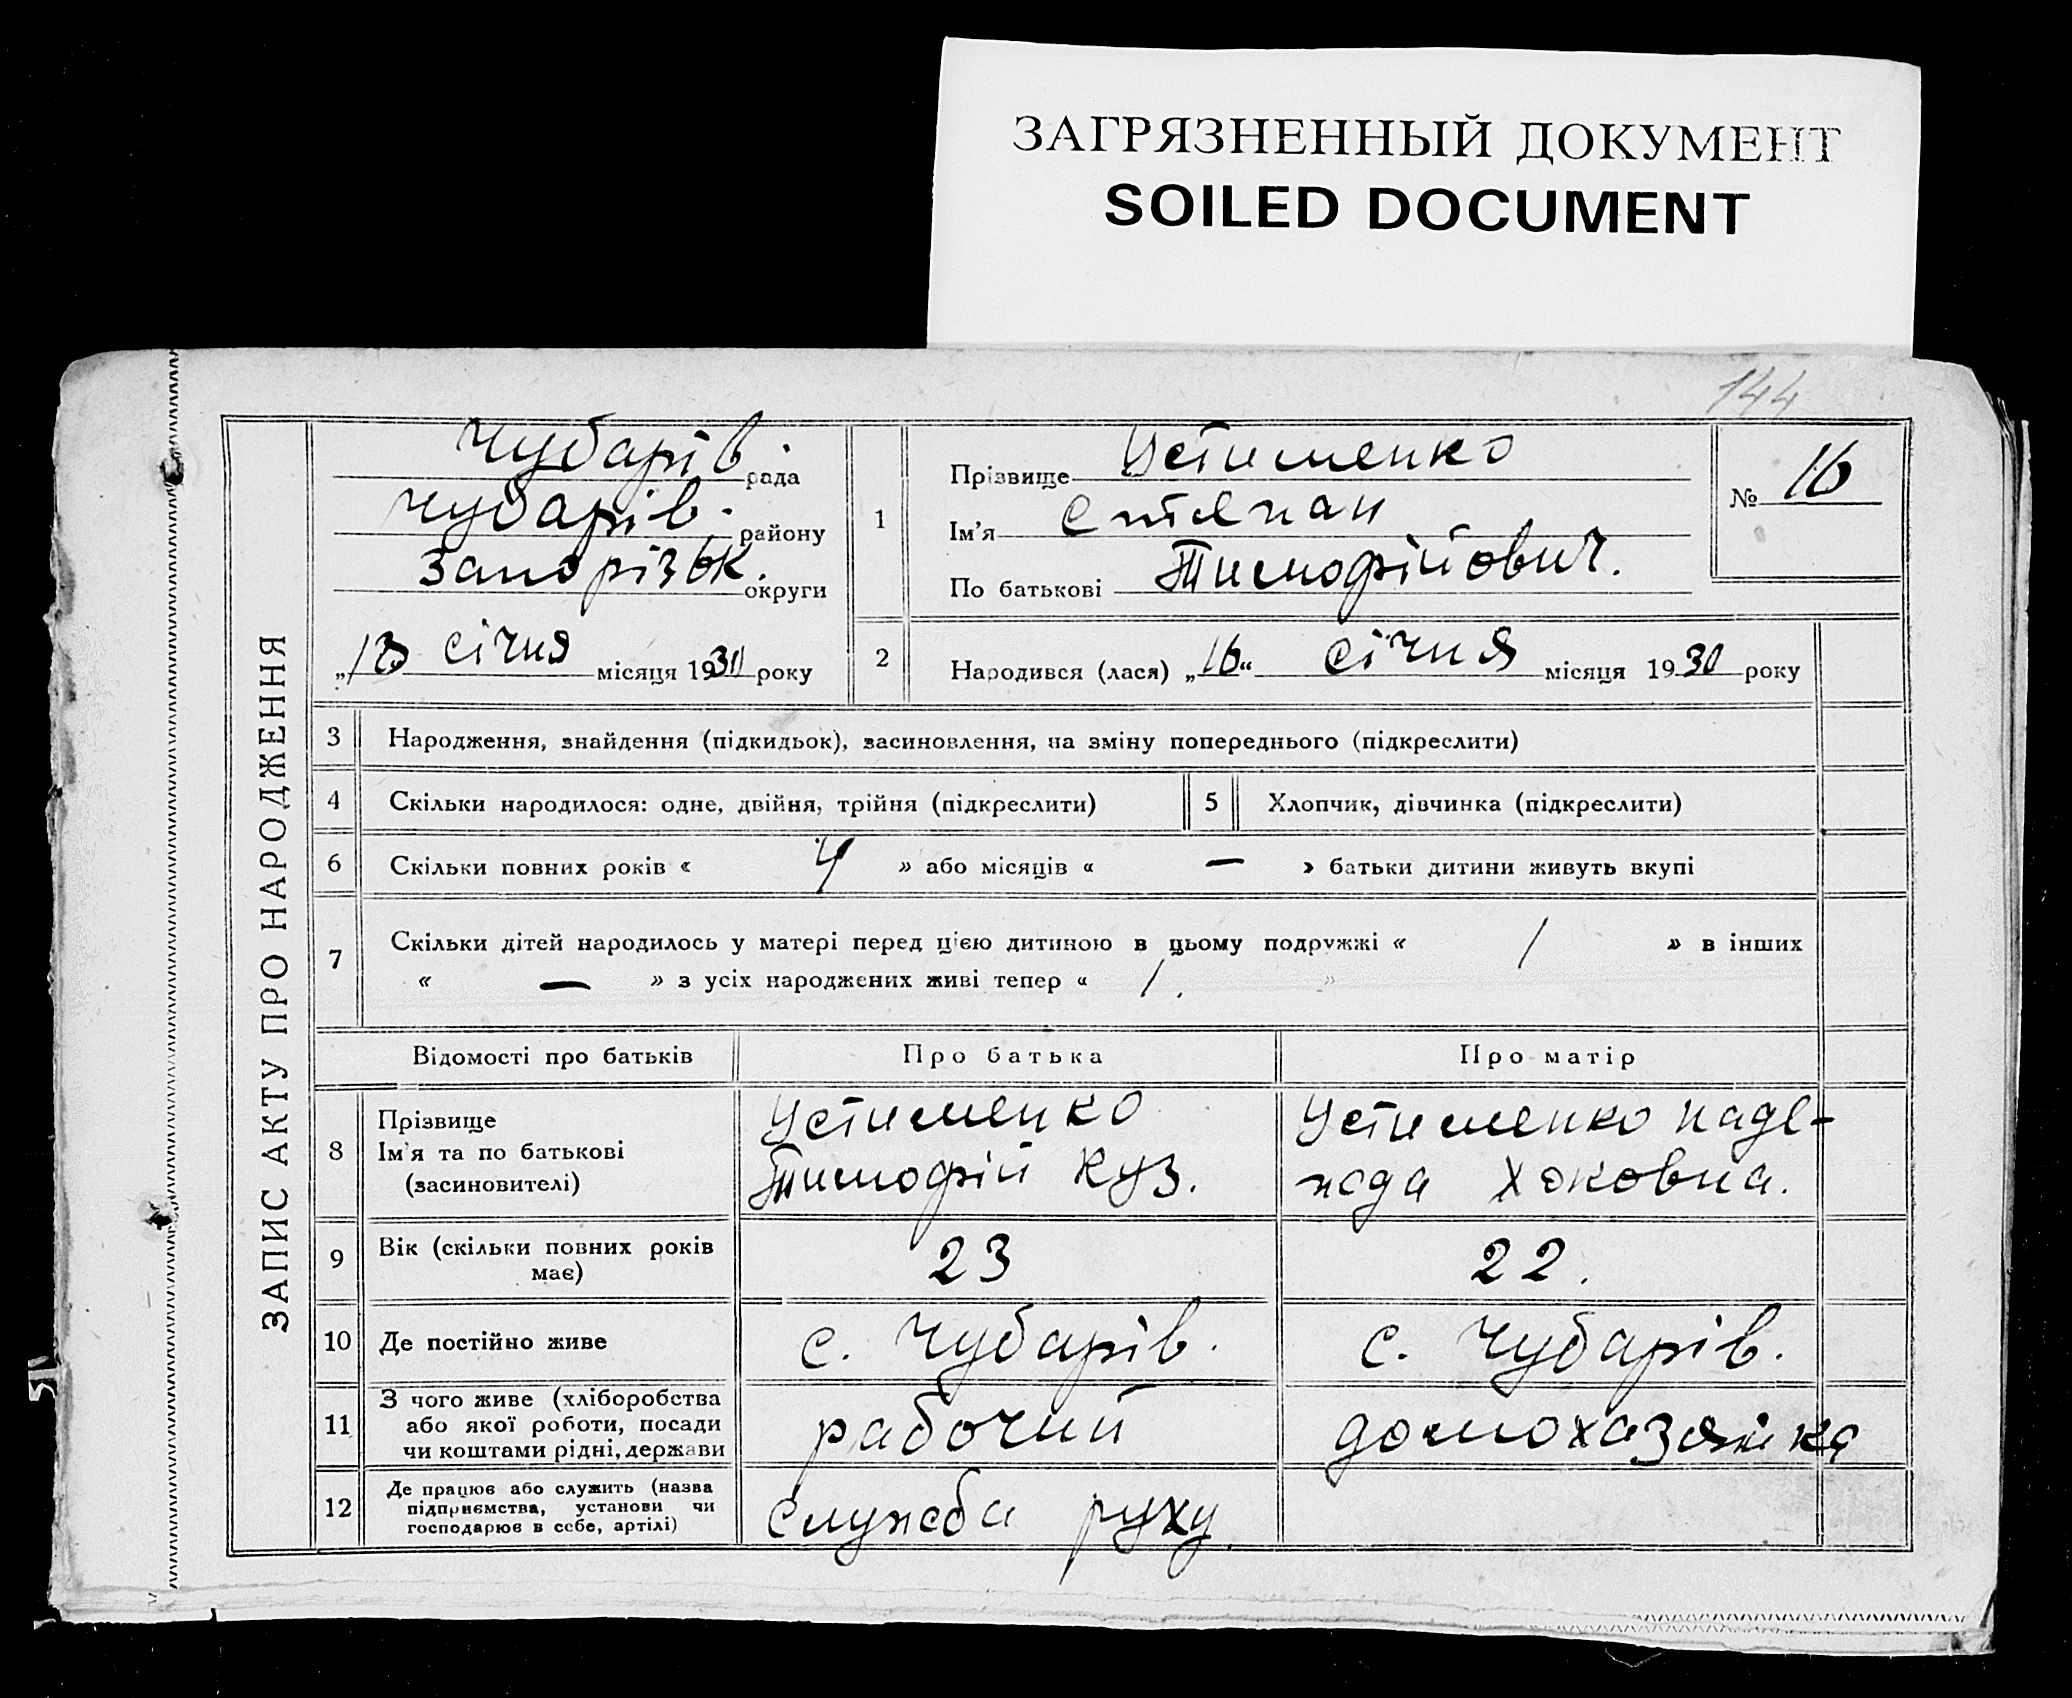 ЗАГРЯЗНЕННЫЙ ДОКУМЕНТ
SOILED DOCUMENT
144
ЗАПИС АКТУ ПРО НАРОДЖЕННЯ
Чубарів. рада
Чубарів. району
Запорізьк. округи
„13 січня місяця 1930 року
1
Прізвище Устименко
Ім'я Степан
По батькові Тимофійович.
№ 16
2
Народився (лася) „16“ січня місяця 1930 року
3 Народження, знайдення (підкидьок), засиновлення, на зміну попереднього (підкреслити)
4 Скільки народилося: одне, двійня, трійня (підкреслити)
5 Хлопчик, дівчинка (підкреслити)
6 Скільки повних років « 4 » або місяців « — » батьки дитини живуть вкупі
7 Скільки дітей народилось у матері перед цією дитиною в цьому подружжі « 1 » в інших
« — » з усіх народжених живі тепер « 1. »
Відомості про батьків Про батька Про матір
8 Прізвище
Ім'я та по батькові
(засиновителі)
Устименко
Тимофій Куз.
Устименко Наде-
жда
9 Вік (скільки повних років
має)
23
22.
10 Де постійно живе с. Чубарів. с. Чубарів.
11 З чого живе (хліборобства
або якої роботи, посади
чи коштами рідні, держави
рабочий
домохазяйка
12 Де працює або служить (назва
підприємства, установи чи
господарює в себе, артілі)
служба руху